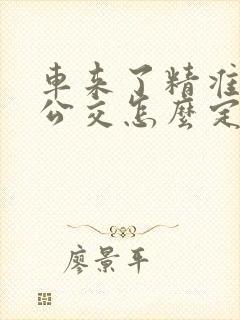 車来了精准
公交怎麼定
廖景平